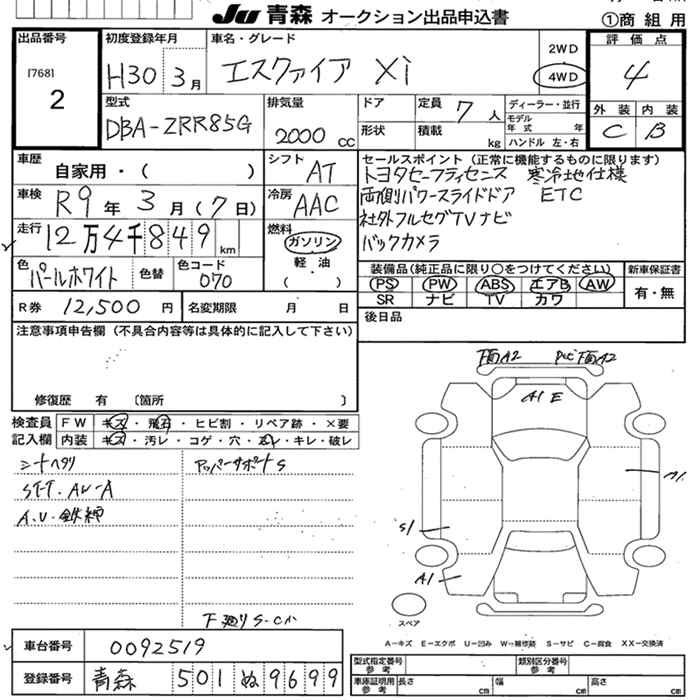 JU 青森 オークション出品申込書
①商 組 用
出品番号
17681
2
初度登録年月
H30 3月
車名・グレード
エスクァイア Xi
2WD
4WD
評 価 点
4
外 装 内 装
C B
型式
DBA-ZRR85G
排気量
2000 CC
ドア
形状
定員 7 人
積載 kg
ディーラー・並行
モデル
年 式 年
ハンドル 左・右
車歴
自家用・( )
シフト
AT
車検
R9 年 3 月 (7 日)
冷房
AAC
走行
12万4千849 km
燃料
ガソリン
軽 油
( ・ )
色
パールホワイト
色替
色コード
070
R券 12,500 円
名変期限 月 日
セールスポイント (正常に機能するものに限ります)
トヨタセーフティセンス 寒冷地仕様
両側パワースライドドア ETC
社外フルセグTVナビ
バックカメラ
装備品(純正品に限り○をつけてください)
PS PW ABS エアB AW
SR ナビ TV カワ
新車保証書
有・無
後日品
注意事項申告欄 (不具合内容等は具体的に記入して下さい)
修復歴 有 〔箇所 〕
検査員
記入欄
FW キズ・飛石・ヒビ割・リペア跡・×要
内装 キズ・汚レ・コゲ・穴・スレ・キレ・破レ
シートヘタリ
アッパーサポートS
STT.AW-A
A.U.鉄錆
下廻りS-C小
下面A2
下面A2
A1 E
A1
S1
A1
スペア
A-キズ E-エクボ U-凹み W-補修跡 S-サビ C-腐食 XX-交換済
車台番号 0092519
登録番号 青森 501 ぬ 9699
型式指定番号
参考
類別区分番号
参考
車庫証明用
参考
長さ cm
幅 cm
高さ cm